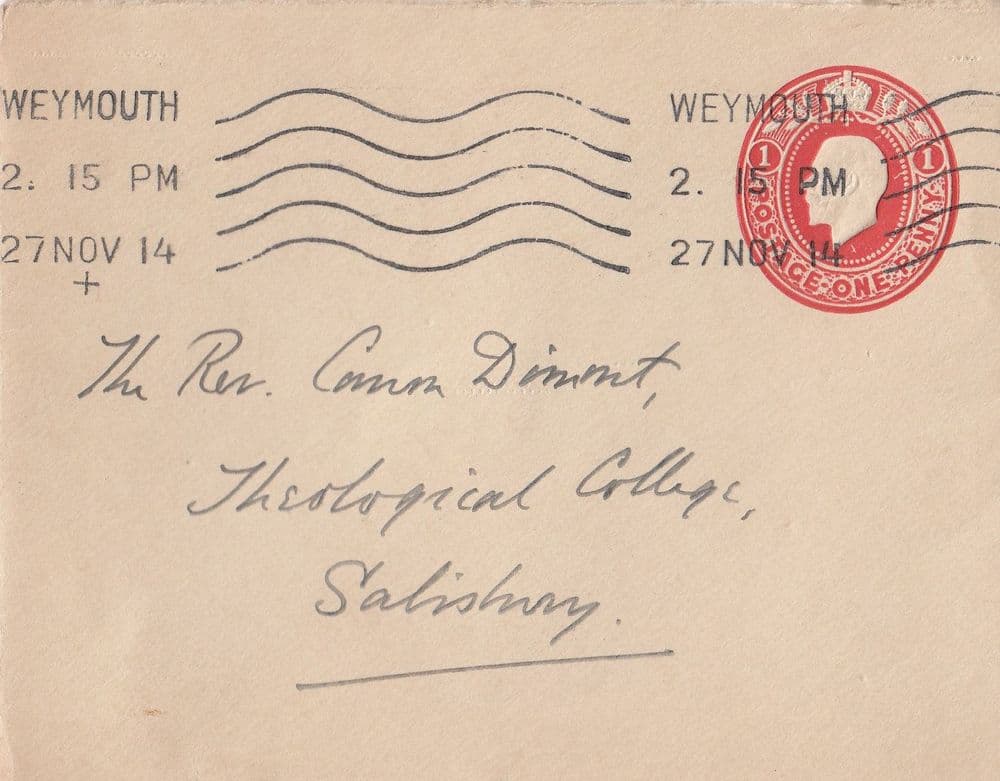 WEYMOUTH
2. 15 PM
27 NOV 14
+
WEYMOUTH
2. 15 PM
27 NOV 14
1 1
POSTAGE·ONE·PENNY
The Rev. Canon Dimont,
Theological College,
Salisbury.